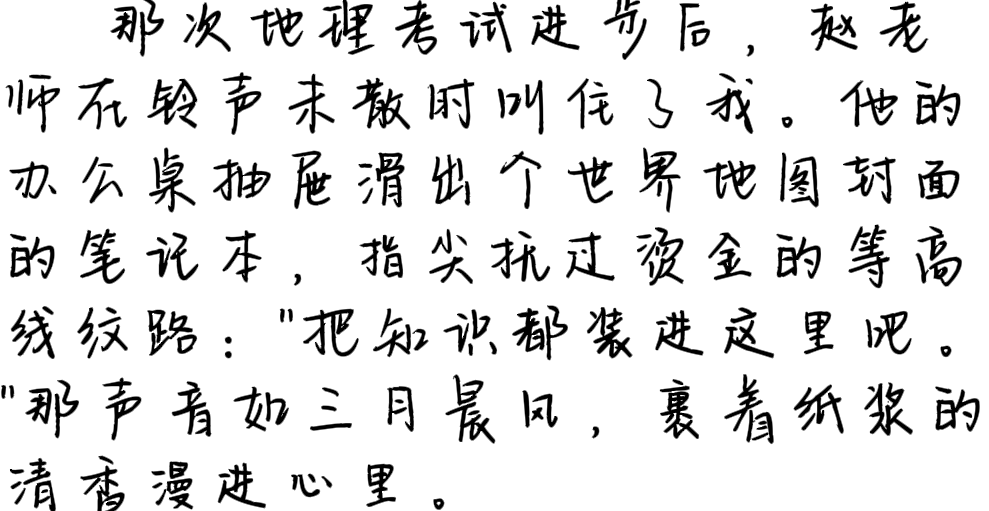 那次地理考试进步后，赵老
师在铃声未散时叫住了我。他的
办公桌抽屉滑出个世界地图封面
的笔记本，指尖抚过烫金的等高
线纹路："把知识都装进这里吧。
"那声音如三月晨风，裹着纸浆的
清香漫进心里。